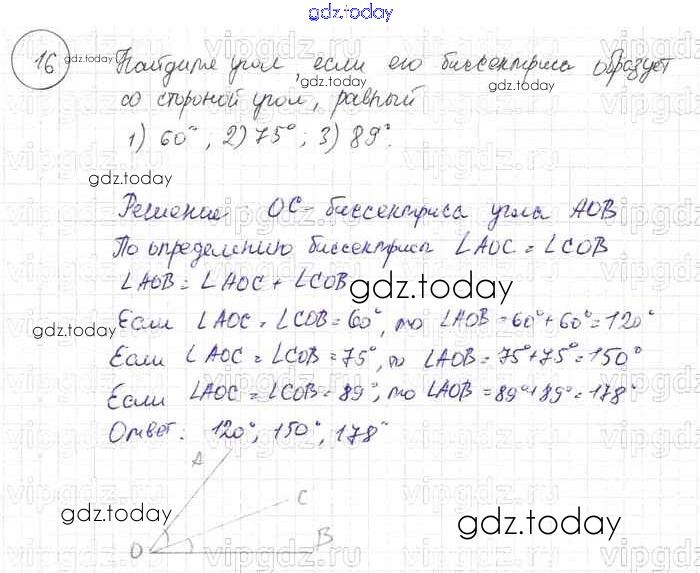 gdz.today
16 gdz.today Найдите угол, если его биссектриса образует
gdz.today
со стороной угол, равный gdz.today
1) 60°, 2) 75°; 3) 89°.
gdz.today
Решение OC - биссектриса угла AOB
По определению биссектрисы ∠AOC = ∠COB
∠AOB = ∠AOC + ∠COB
gdz.today
Если ∠AOC = ∠COB = 60°, то ∠AOB = 60° + 60° = 120°
gdz.today
Если ∠AOC = ∠COB = 75°, то ∠AOB = 75° + 75° = 150°
Если ∠AOC = ∠COB = 89°, то ∠AOB = 89° + 89° = 178°
Ответ: 120°, 150°, 178°
A
C
gdz.today gdz.today
O B